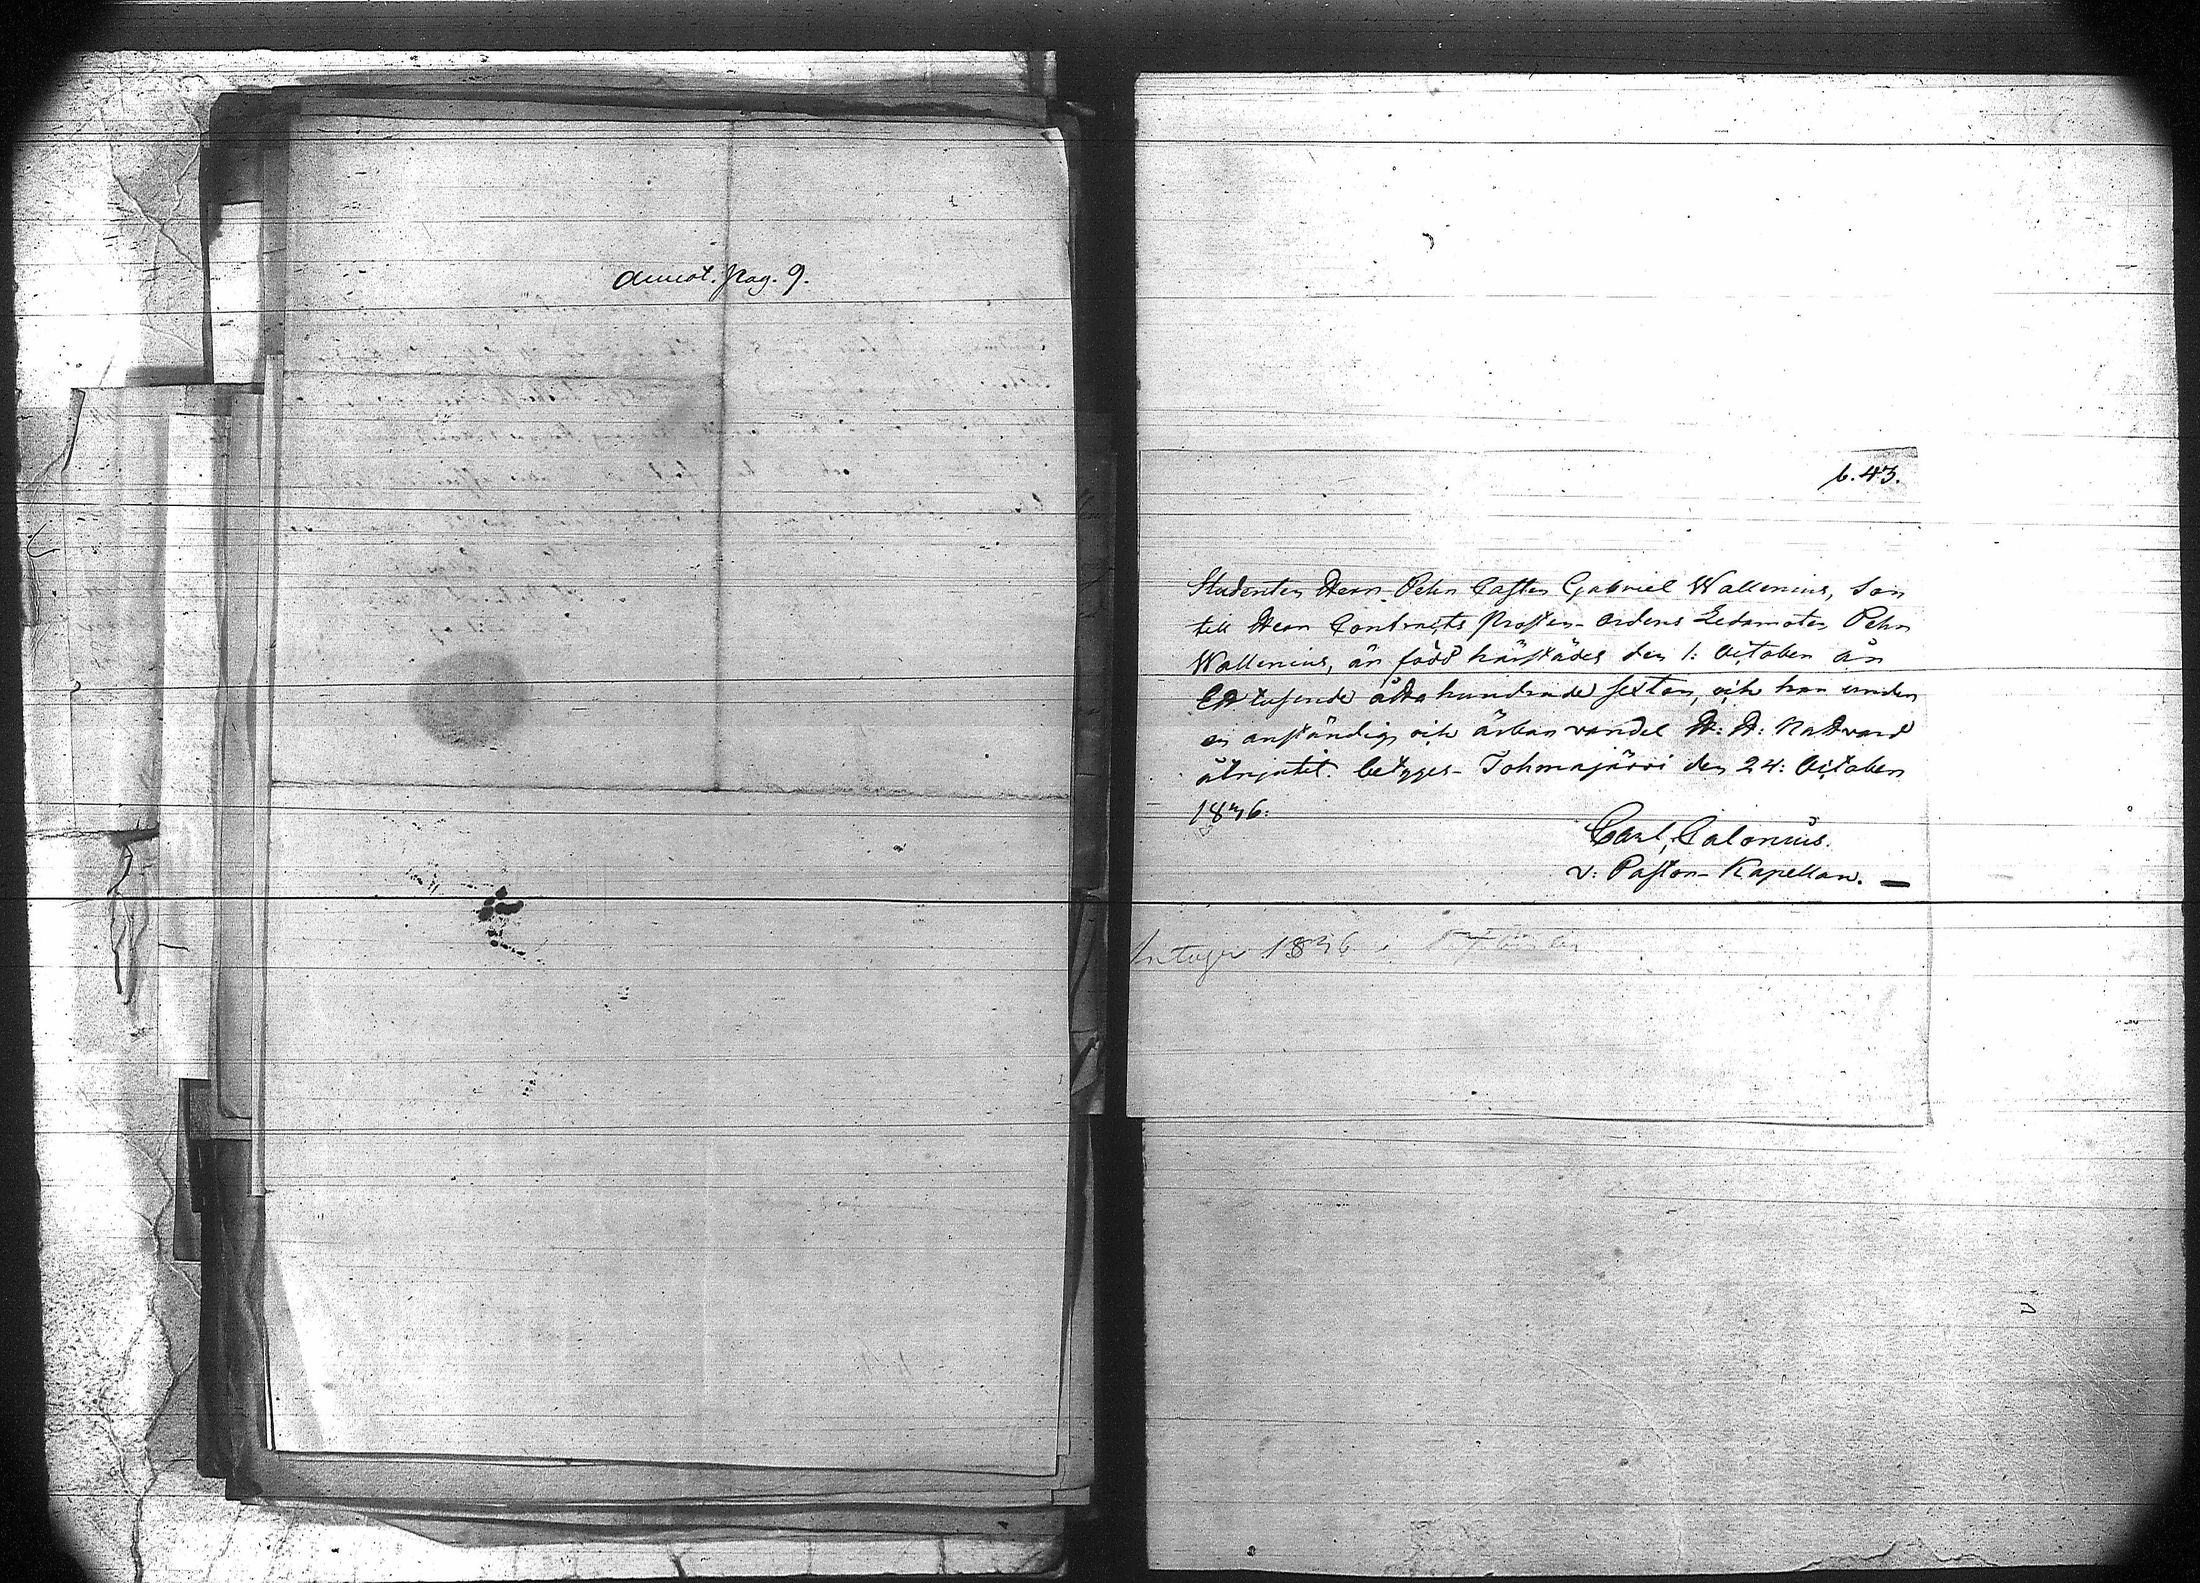 annot. pag. 9.
b. 43.
Studenten Herr Pehr Casten Gabriel Wallenius, Son
till Herr Contracts Prosten- Ordens Ledamoten Pehr
Wallenius, är född härstädes den 1: October år
Ett tusende åtta hundrade sexton, och har under
en anständig och ärbar vandel H: H: Nattvard
åtnjutit. betyges- Tohmajärvi den 24: October
1836:
Carl, Calonius.
v: Pastor- Kapellan. —
Antagen 1836 i